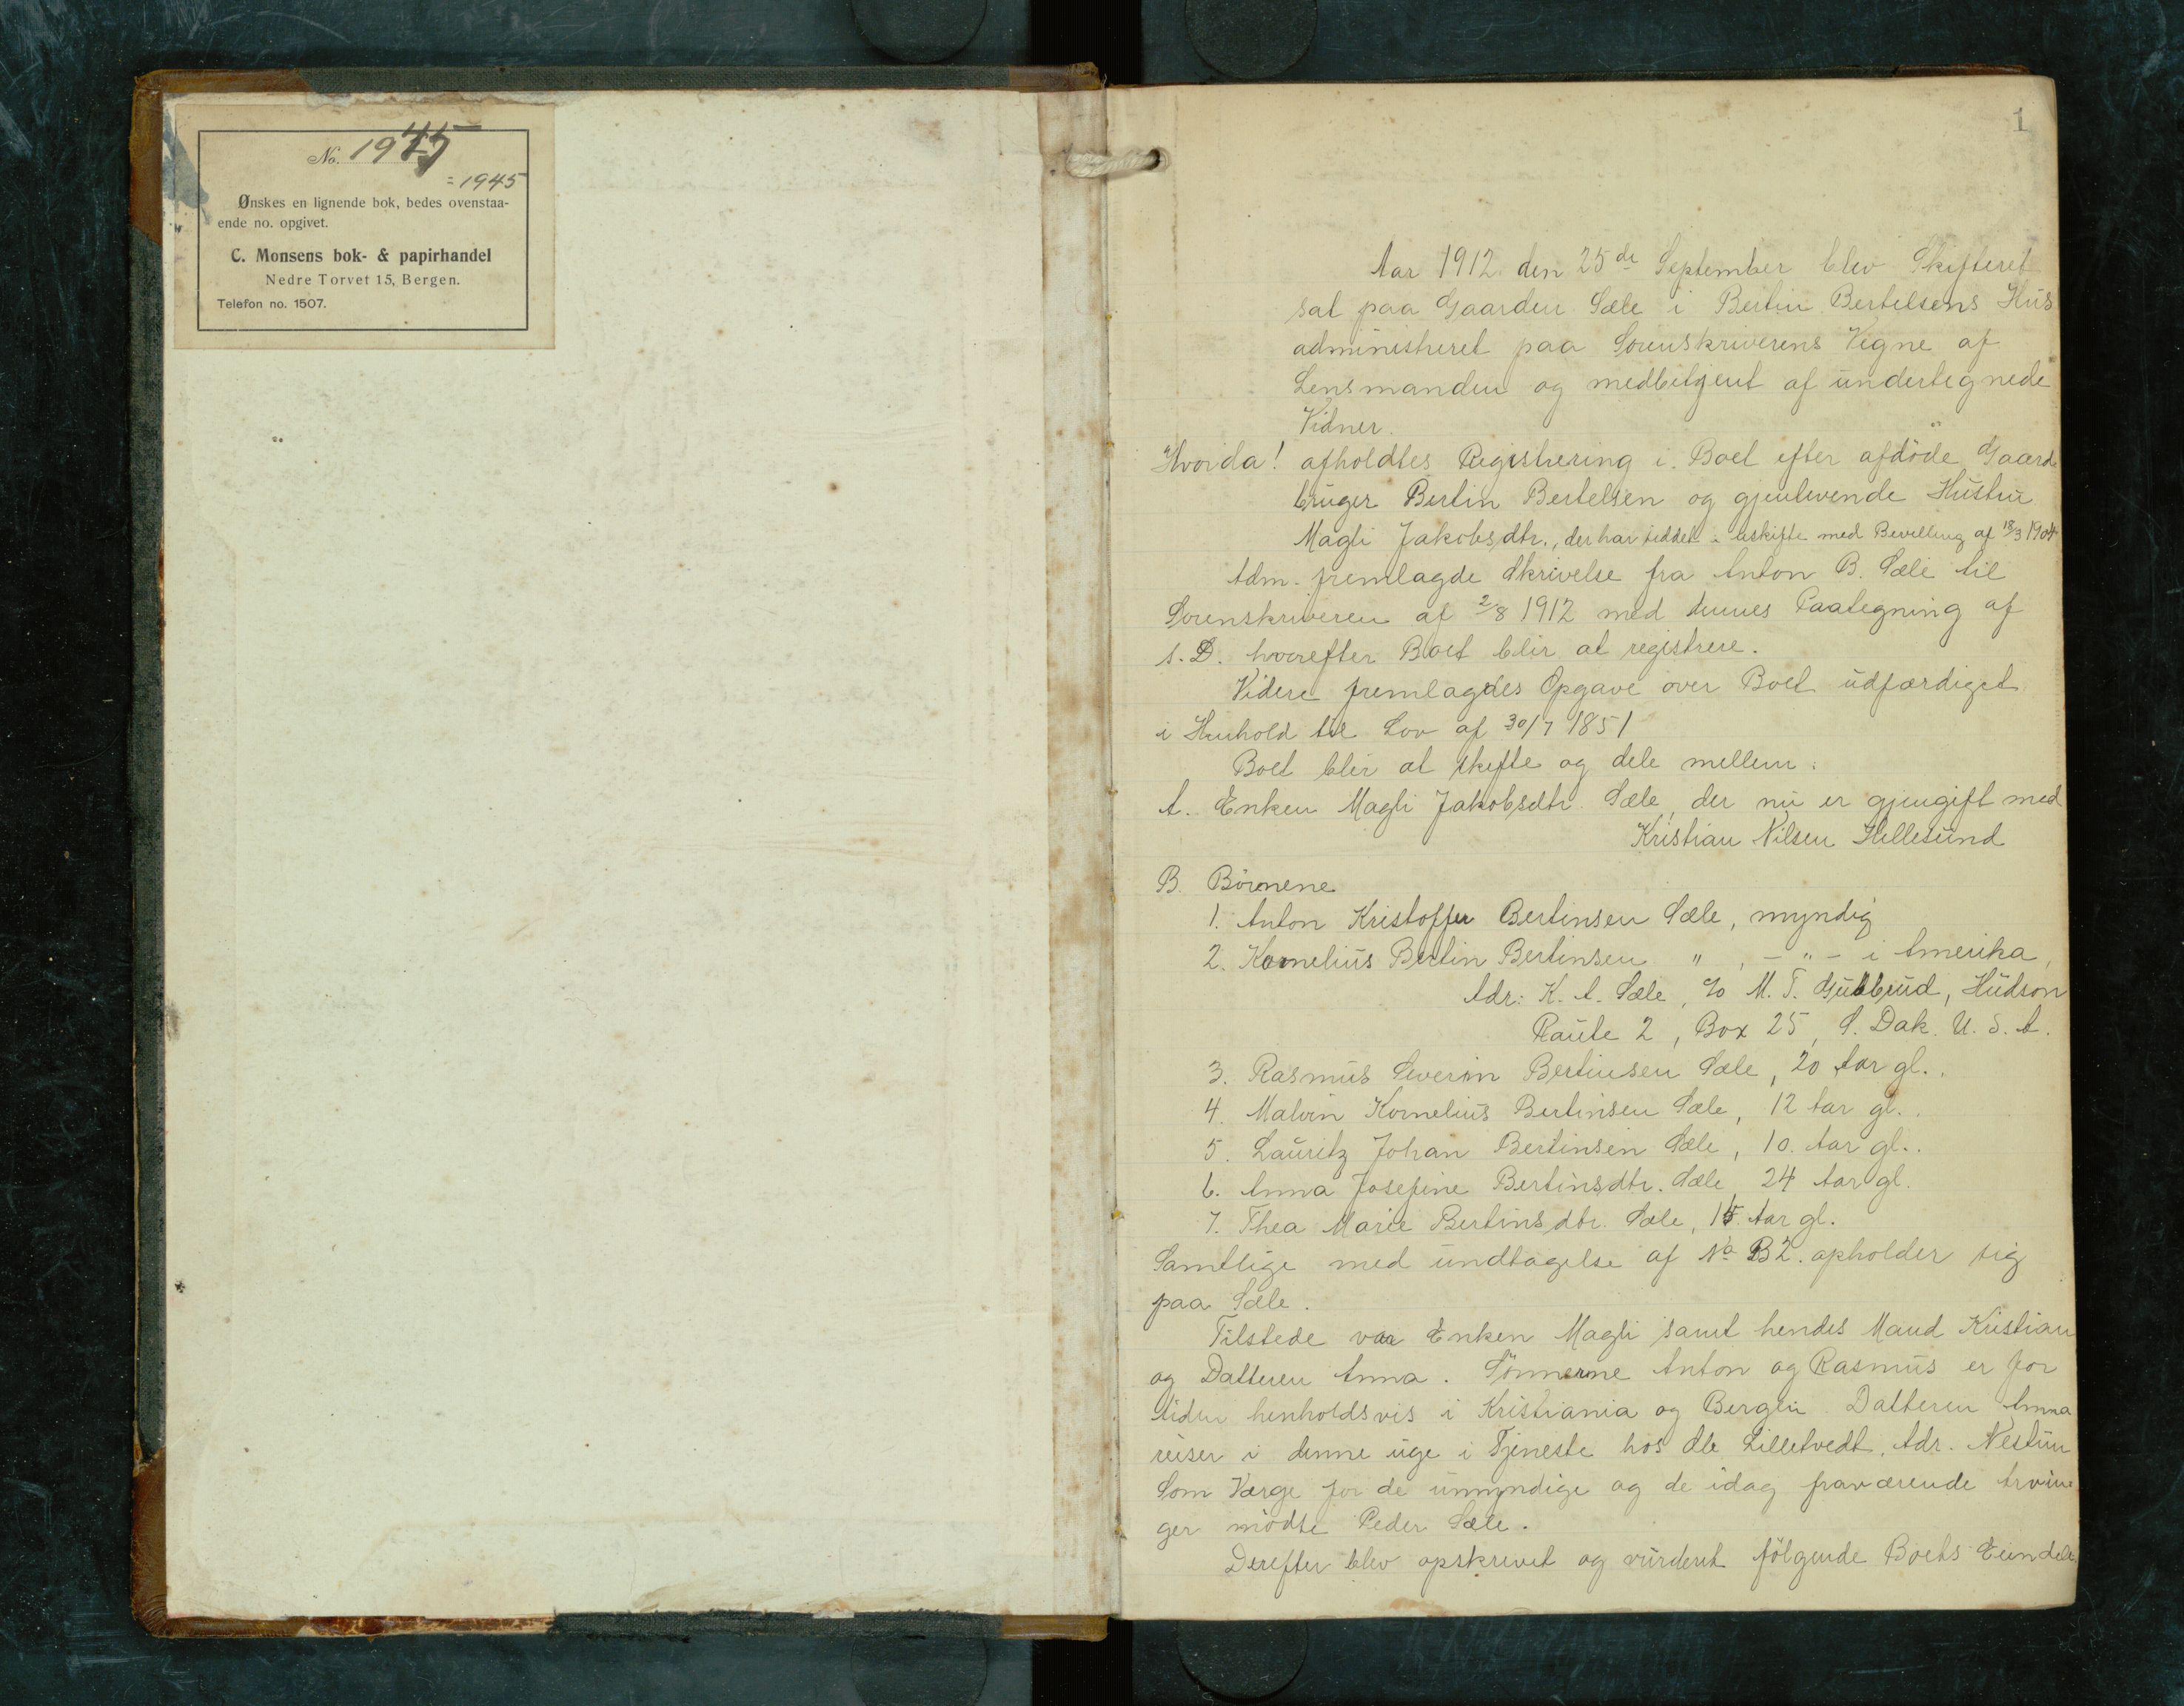 No. 1945
=1945
Ønskes en lignende bok, bedes ovenstaa-
ende no. opgivet.
C. Monsens bok- & papirhandel
Nedre Torvet 15, Bergen.
Telefon no. 1507.
1
Aar 1912 den 25de September blev Skifteret
sat paa Gaarden Sæle i Bertin Bertelsens Hus
administreret paa Sorenskriverens Vegne af
Lensmanden og medbetjent af undertegnede
Vidner.
Hvorda! afholdtes Registrering i Boet efter afdöde Gaard
bruger Bertin Bertelsen og gjenlevende Hustru
Magli Jakobsdtr., der har siddet i uskifte med Bevilling af 18/3 1904
Adm. fremlagde Skrivelse fra Anton B. Sæle til
Sorenskriveren af 2/8 1912 med dennes Paategning af
s. D. hvorefter Boet blir at registrere.
Videre fremlagdes Opgave over Boet udfærdiget
i Henhold til Lov af 30/7 1851
Boet blir at skifte og dele mellem:
A. Enken Magli Jakobsdtr. Sæle, der nu er gjengift med
Kristian Nilsen Hillesund
B. Börnene
1. Anton Kristoffer Bertinsen Sæle, myndig
2. Kornelius Bertin Bertinsen " , - " - i Amerika,
Adr: K. A. Sæle, c/o M. T. Gubbrud, Hudson
Raute 2, Box 25, S. Dak. U. S. A.
3. Rasmus Severin Bertinsen Sæle, 20 Aar gl..
4. Malvin Kornelius Bertinsen Sæle, 12 Aar gl..
5. Lauritz Johan Bertinsen Sæle, 10. Aar gl..
6. Anna Josefine Bertinsdtr. Sæle 24 Aar gl.
7. Thea Marie Bertinsdtr. Sæle, 15. Aar gl.
Samtlige med undtagelse af No B2. opholder sig
paa Sæle.
Tilstede var Enken Magli samt hendes Mand Kristian
og Datteren Anna. Sönnerne Anton og Rasmus er for
tiden henholdsvis i Kristiania og Bergen. Datteren Anna
reiser i denne uge i Tjeneste hos Lilletvedt, Adr. Nestun
Som Værge for de umyndige og de idag fraværende Arvin
ger mödte Peder Sæle.
Derefter blev opskrevet og vurderet fölgende Boets Eiendele